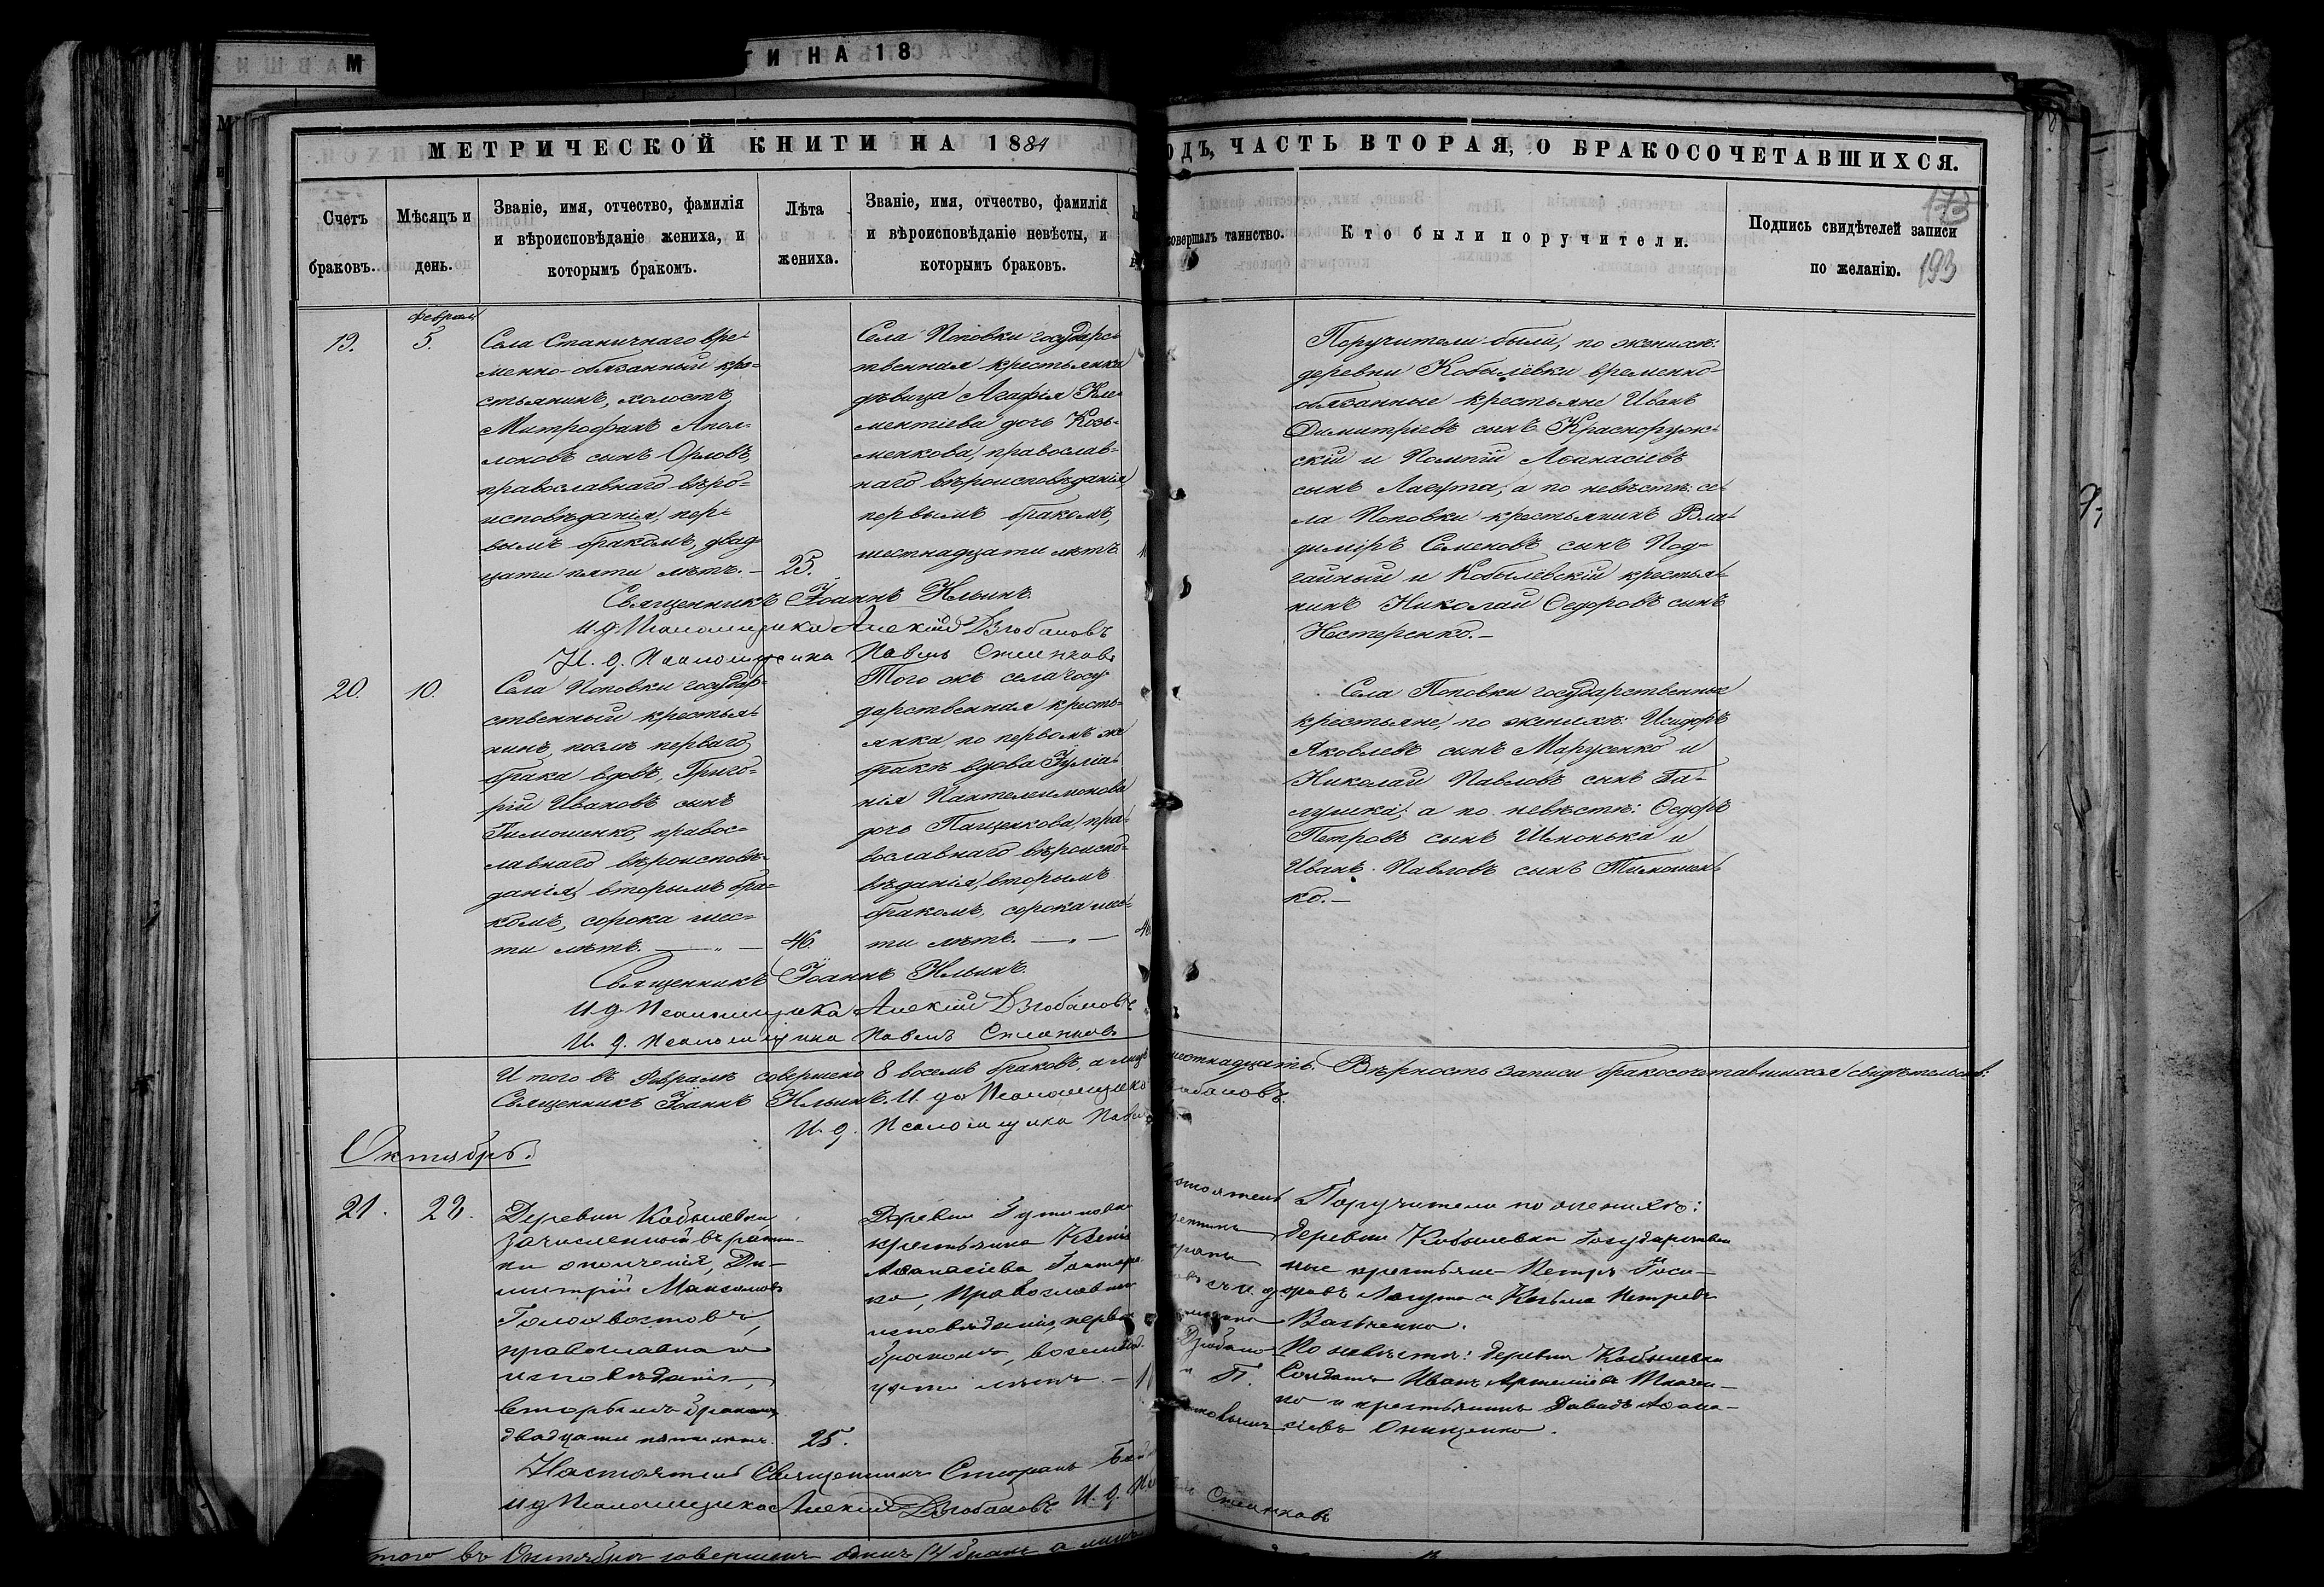 ГИ НА 18
МЕТРИЧЕСКОЙ КНИГИ НА 1884
ОДЪ, ЧАСТЬ ВТОРАЯ, О БРАКОСОЧЕТАВШИХСЯ.
Счетъ браковъ.
Мѣсяцъ и день.
Званіе, имя, отчество, фамилія
и вѣроисповѣданіе жениха, и
которымъ бракомъ.
Лѣта
жениха.
Званіе, имя, отчество, фамилія
и вѣроисповѣданіе невѣсты, и
которымъ браковъ.
совершалъ таинство.
Кто были поручители.
Подпись свидѣтелей записи
по желанію.
173
193
Февраль
19.
5.
Села Станичнаго вре-
менно-обязанный кре-
стьянинъ, холостъ
Митрофанъ Апол-
лоновъ сынъ Орловъ,
православнаго вѣро-
исповѣданія, пер-
вымъ бракомъ, двад-
цати пяти лѣтъ. —
25.
Села Поповки государс-
твенная крестьянка
дѣвица Агафія Кле-
ментіева дочь Козь-
менкова, православ-
наго вѣроисповѣданія,
первымъ бракомъ,
шестнадцати лѣтъ
Поручители были, по женихѣ:
деревни Кобылевки временно-
обязанные крестьяне Иванъ
Димитріевъ сынъ Красноруж-
скій и Помпій Аѳанасіевъ
сынъ Лагута, а по невѣстѣ: се-
ла Поповки крестьянинъ Вла-
диміръ Семеновъ сынъ Под-
гайный и Кобылевскій крестья-
нинъ Николай Ѳедоровъ сынъ
Нестеренко. —
Священникъ Іоаннъ Ильинъ.
И. д. Псаломщика Алексій Дзюбановъ
И. д. Псаломщика Павелъ
20.
10.
Села Поповки государ-
ственный крестья-
нинъ, послѣ перваго
брака вдовъ, Григо-
рій Ивановъ сынъ
Тимошенко, правос-
лавнаго вѣроисповѣ-
данія, вторымъ бра-
комъ, сорока шес-
ти лѣтъ. — „ —
46.
Того же села госу-
дарственная кресть-
янка, по первомъ же
бракѣ вдова Іуліа-
нія Пантелеимонова
дочь Пащенкова, пра-
вославнаго вѣроиспо-
вѣданія, вторымъ
бракомъ, сорока шес-
ти лѣтъ. — „ —
Села Поповки государственные
крестьяне, по женихѣ: Исидоръ
Яковлевъ сынъ Марусенко и
Николай Павловъ сынъ Га-
лушка; а по невѣстѣ: Ѳедоръ
Петровъ сынъ Шионька и
Иванъ Павловъ сынъ Тимошен-
ко. —
Священникъ Іоаннъ Ильинъ.
И. д. Псаломщика Алексій Дзюбановъ
И. д. Псаломщика Павелъ
И того въ Февралѣ совершено 8 восемь браковъ, а лицъ шестнадцать. Вѣрность записи бракосочетавшихся свидѣтельств:
Священникъ Іоаннъ Ильинъ. И. д. Псаломщика
И. д. Псаломщика
Октябрь.
21.
28.
Деревни Кобылевки
зачисленный въ ратни-
ки ополченія, Ди-
митрій Максимовъ
Голохвостовъ,
православнаго
исповѣданія,
вторымъ бракомъ
двадцати пяти лѣтъ.
25.
Деревни
крестьянка Ксенія
Аѳанасіева
ко, православнаго
исповѣданія, первымъ
бракомъ,
лѣтъ. —
Поручители по женихѣ:
деревни Кобылевки Государствен
ные крестьяне Петръ Іоси-
фовъ Лагута и Козьма Петровъ
По невѣстѣ: деревни Кобылевки
Солдатъ Иванъ
но и крестьянинъ Давидъ Аѳана-
сіевъ Онищенко.
Настоятель Священникъ Стефанъ
И д Псаломщика Алексій Дзюбановъ И. д.
того въ Октябрѣ совершенъ одинъ (1) бракъ а лицъ